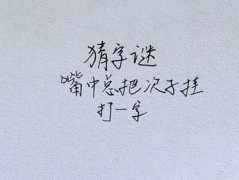 猜字谜
嘴中总把次子挂
打一字